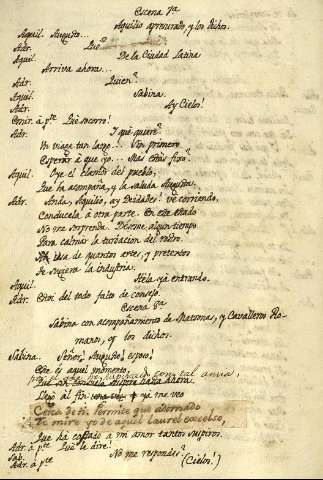 Escena 7ª
Aquilio apresurado, y los dichos.
Aquil. Augusto...
Adr. Què?
Aquil. De la Ciudad Latina
Arriva ahora...
Adr. Quien?
Aquil. Sabina.
Adr. Ay Cielos!
Emir. à pte. Què socorro!
Adr. Y què quiere?
Un viage tan largo... Sin primero
Esperar à que yo... Mas estás fixo?
Aquil. Oye el clamor del pueblo,
Que la acompaña, y la saluda Augusta.
Adr. Anda, Aquilio, ay Deidades! vè corriendo,
Conducela à otra parte. En este estado
No me sorprenda. Dèseme algun tiempo
Para calmar la turbacion del rostro.
Usa de quantas artes, y pretextos
Te sugiera la industria.
Aquil. Hela yà entrando.
Adr. Estoi del todo falto de consejo.
Escena 8ª
Sabina con acompañamiento de Matronas, y Cavalleros Ro-
manos, y los dichos.
Sabina. Señor! Augusto! esposo!
Este es aquel momento,
con tal ansia,
hasta ahora.
Llegò al fin ya me veo
Cerca de ti. Permite que adornado
Te mire yo de aquel laurel excelso,
Que ha costado à mi amor tantos suspiros.
Adr. à pte. Què le dire!
Sab. No me respondes?
Adr. à pte. (Cielos!)